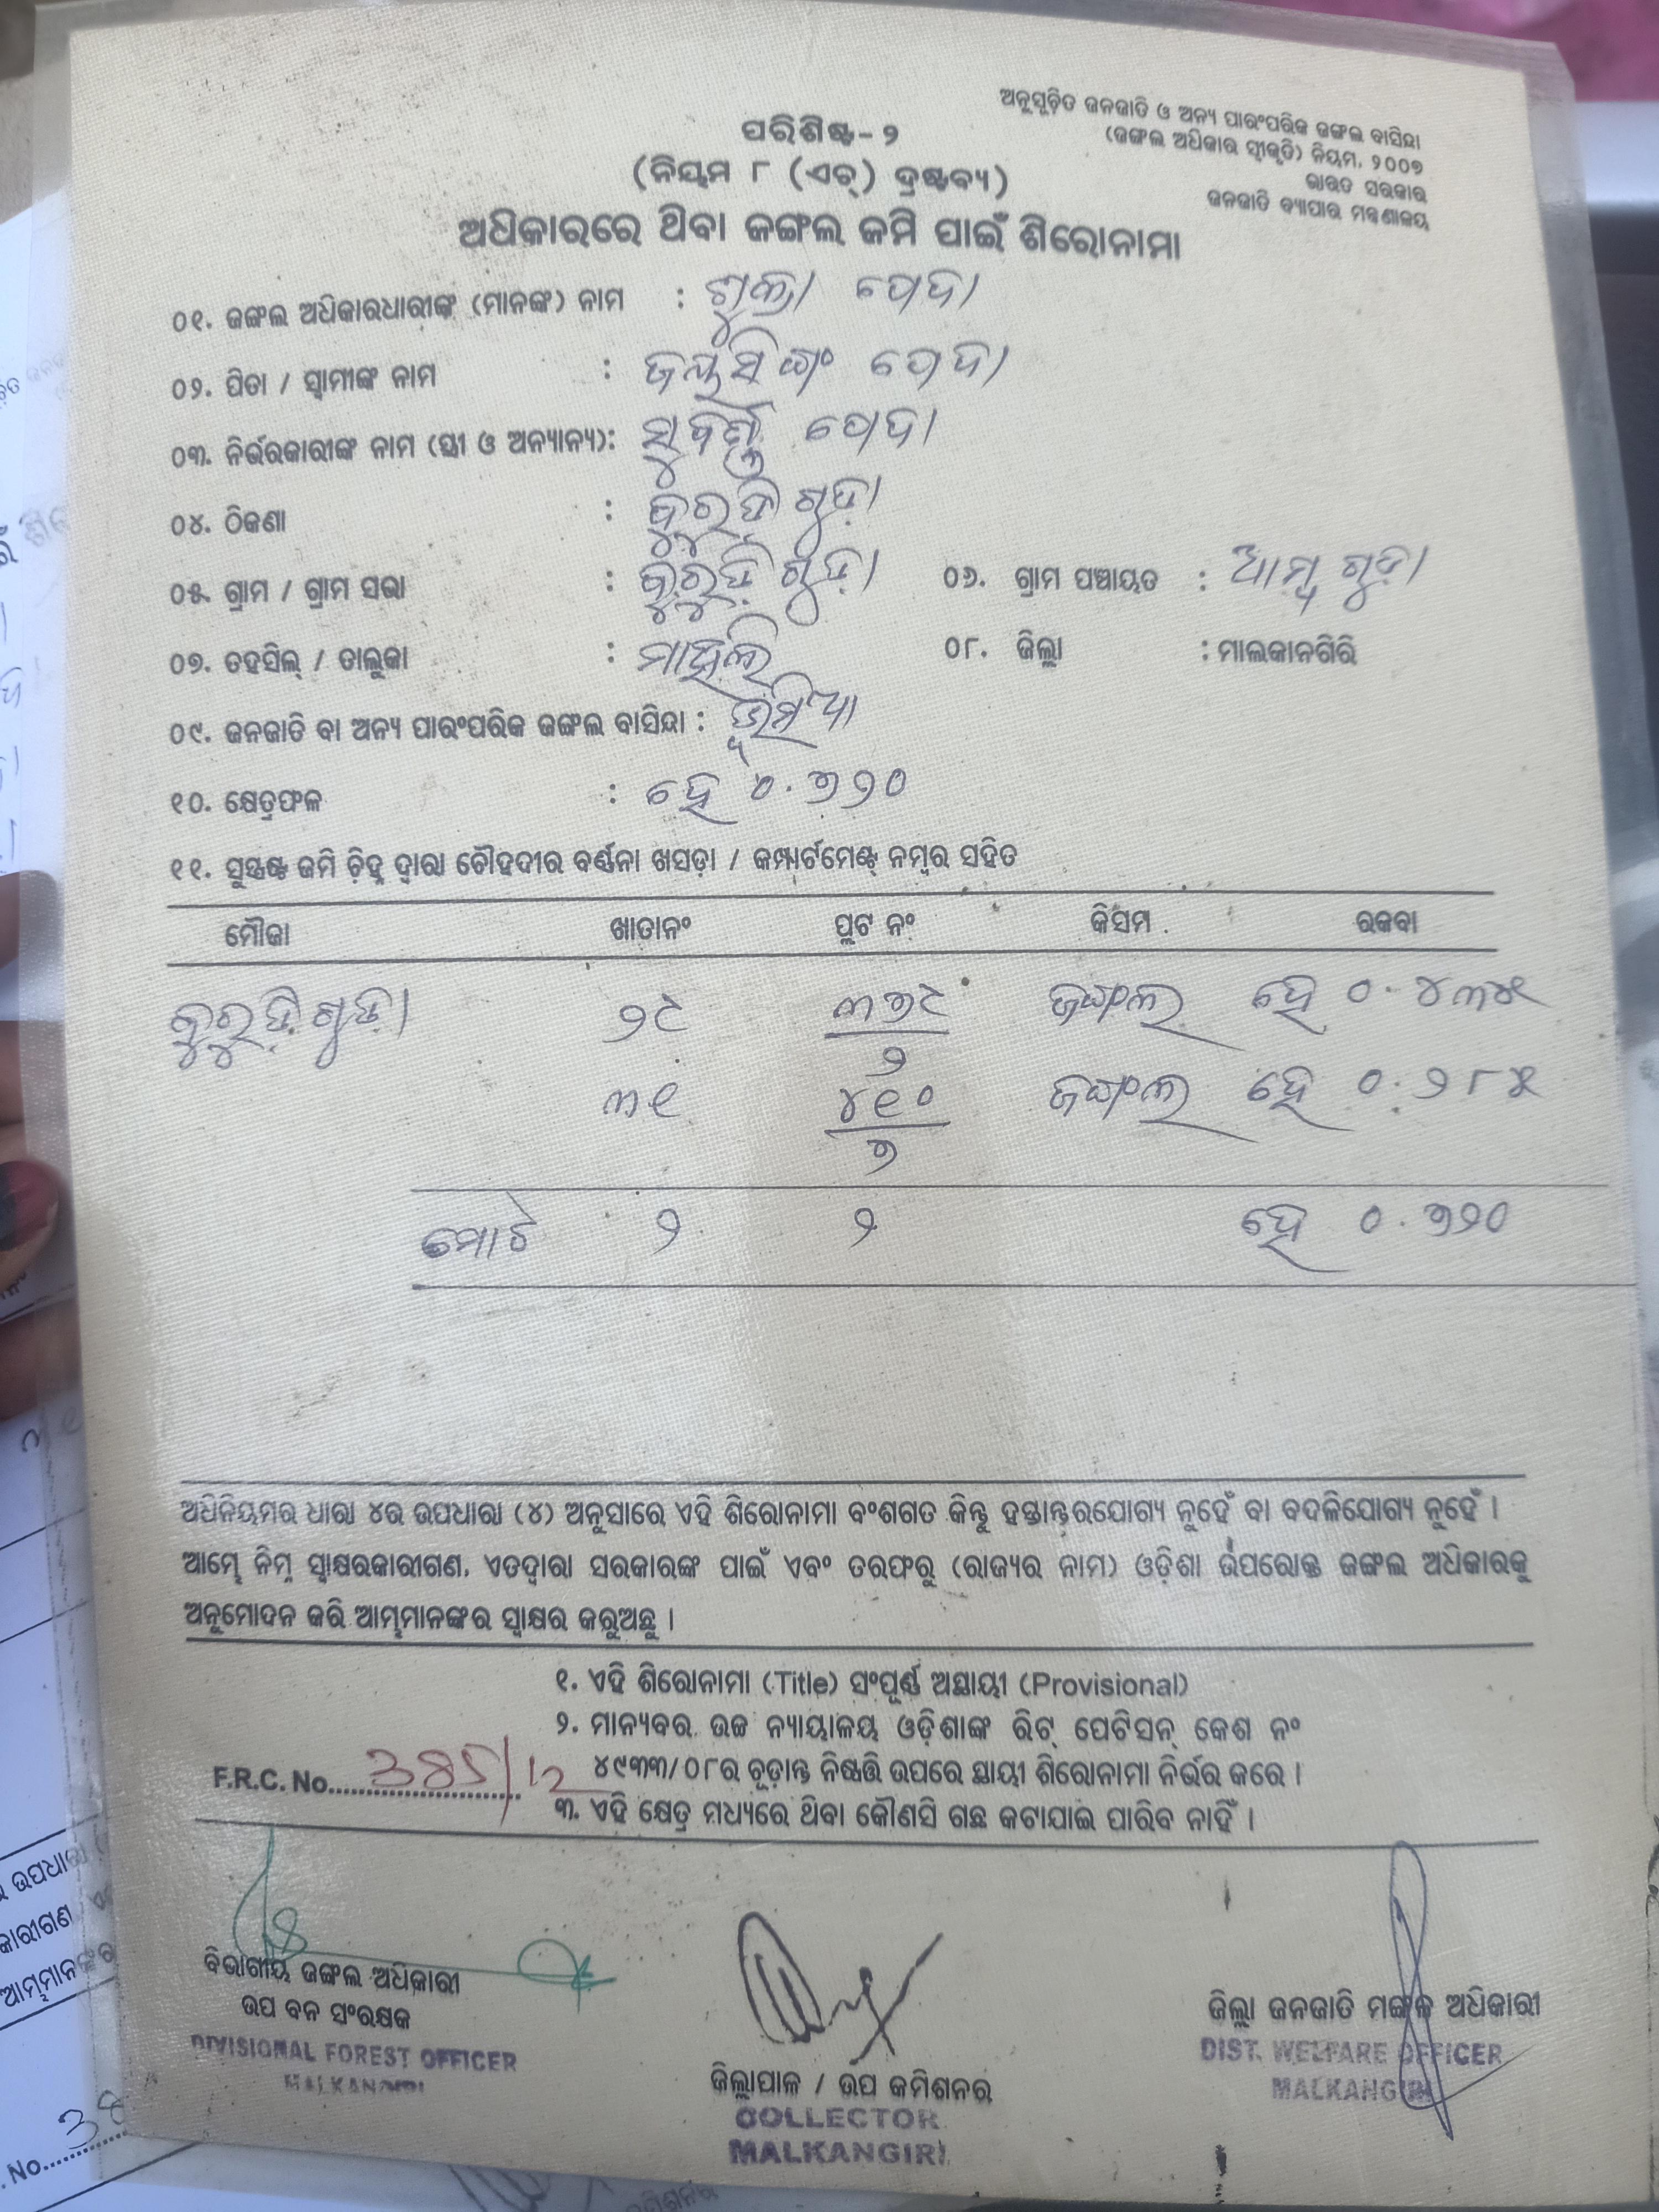 ଅନୁସୂଚିତ ଜନଜାତି ଓ ଅନ୍ୟ ପାରଂପରିକ ଜଙ୍ଗଲ ବାସିନ୍ଦା
(ଜଙ୍ଗଲ ଅଧିକାର ସ୍ୱୀକୃତି) ନିୟମ, ୨୦୦୭
ଭାରତ ସରକାର
ଜନଜାତି ବ୍ୟାପାର ମନ୍ତ୍ରଣାଳୟ
ପରିଶିଷ୍ଟ-୨
(ନିୟମ ୮ (ଏଚ୍) ଦ୍ରଷ୍ଟବ୍ୟ)
ଅଧିକାରରେ ଥିବା ଜଙ୍ଗଲ ଜମି ପାଇଁ ଶିରୋନାମା
୦୧. ଜଙ୍ଗଲ ଅଧିକାରଧାରୀଙ୍କ (ମାନଙ୍କ) ନାମ : ଶୁକ୍ରା ପେଦା
୦୨. ପିତା / ସ୍ୱାମୀଙ୍କ ନାମ : ଜୟସିଙ୍ଗଂ ପେଦା
୦୩. ନିର୍ଭରକାରୀଙ୍କ ନାମ (ସ୍ତ୍ରୀ ଓ ଅନ୍ୟାନ୍ୟ): ସୁବର୍ଣ୍ଣ ପେଦା
୦୪. ଠିକଣା : କୁରୁଡ଼ିଗୁଡ଼ା
୦୫. ଗ୍ରାମ / ଗ୍ରାମ ସଭା : କୁରୁଡ଼ିଗୁଡ଼ା ୦୬. ଗ୍ରାମ ପଞ୍ଚାୟତ : ଆମ୍ବଗୁଡ଼ା
୦୭. ତହସିଲ୍ / ତାଲୁକା : ମାଥିଲି ୦୮. ଜିଲ୍ଲା : ମାଲକାନଗିରି
୦୯. ଜନଜାତି ବା ଅନ୍ୟ ପାରଂପରିକ ଜଙ୍ଗଲ ବାସିନ୍ଦା : ଭୂମିଆ
୧୦. କ୍ଷେତ୍ରଫଳ : ହେ ୦.୭୨୦
୧୧. ସୁସ୍ପଷ୍ଟ ଜମି ଚିହ୍ନ ଦ୍ୱାରା ଚୌହଦୀର ବର୍ଣ୍ଣନା ଖସଡ଼ା / କମ୍ପାର୍ଟମେଣ୍ଟ୍ ନମ୍ବର ସହିତ
ମୌଜା ଖାତାନଂ ପ୍ଲଟ ନଂ କିସମ ରକବା
କୁରୁଡ଼ିଗୁଡ଼ା ୨୯ ୩୭୯/୨ ଜଙ୍ଗଲ ହେ ୦.୪୩୫
୩୧ ୪୧୦/୭ ଜଙ୍ଗଲ ହେ ୦.୨୮୫
ମୋଟ ୨ ୨ ହେ ୦.୭୨୦
ଅଧିନିୟମର ଧାରା ୪ର ଉପଧାରା (୪) ଅନୁସାରେ ଏହି ଶିରୋନାମା ବଂଶଗତ କିନ୍ତୁ ହସ୍ତାନ୍ତରଯୋଗ୍ୟ ନୁହେଁ ବା ବଦଳିଯୋଗ୍ୟ ନୁହେଁ ।
ଆମ୍ଭେ ନିମ୍ନ ସ୍ୱାକ୍ଷରକାରୀଗଣ, ଏତଦ୍ୱାରା ସରକାରଙ୍କ ପାଇଁ ଏବଂ ତରଫରୁ (ରାଜ୍ୟର ନାମ) ଓଡ଼ିଶା ଉପରୋକ୍ତ ଜଙ୍ଗଲ ଅଧିକାରକୁ
ଅନୁମୋଦନ କରି ଆମ୍ଭମାନଙ୍କର ସ୍ୱାକ୍ଷର କରୁଅଛୁ ।
୧. ଏହି ଶିରୋନାମା (Title) ସଂପୂର୍ଣ୍ଣ ଅସ୍ଥାୟୀ (Provisional)
୨. ମାନ୍ୟବର ଉଚ୍ଚ ନ୍ୟାୟାଳୟ ଓଡ଼ିଶାଙ୍କ ରିଟ୍ ପେଟିସନ୍ କେଶ ନଂ
୪୯୩୩/୦୮ର ଚୂଡ଼ାନ୍ତ ନିଷ୍ପତ୍ତି ଉପରେ ସ୍ଥାୟୀ ଶିରୋନାମା ନିର୍ଭର କରେ ।
F.R.C. No. 385/12
୩. ଏହି କ୍ଷେତ୍ର ମଧ୍ୟରେ ଥିବା କୌଣସି ଗଛ କଟାଯାଇ ପାରିବ ନାହିଁ ।
ବିଭାଗୀୟ ଜଙ୍ଗଲ ଅଧିକାରୀ
ଉପ ବନ ସଂରକ୍ଷକ
DIVISIONAL FOREST OFFICER
MALKANGIRI
ଜିଲ୍ଲାପାଳ / ଉପ କମିଶନର
COLLECTOR
MALKANGIRI
ଜିଲ୍ଲା ଜନଜାତି ମଙ୍ଗଳ ଅଧିକାରୀ
DIST. WELFARE OFFICER
MALKANGIRI